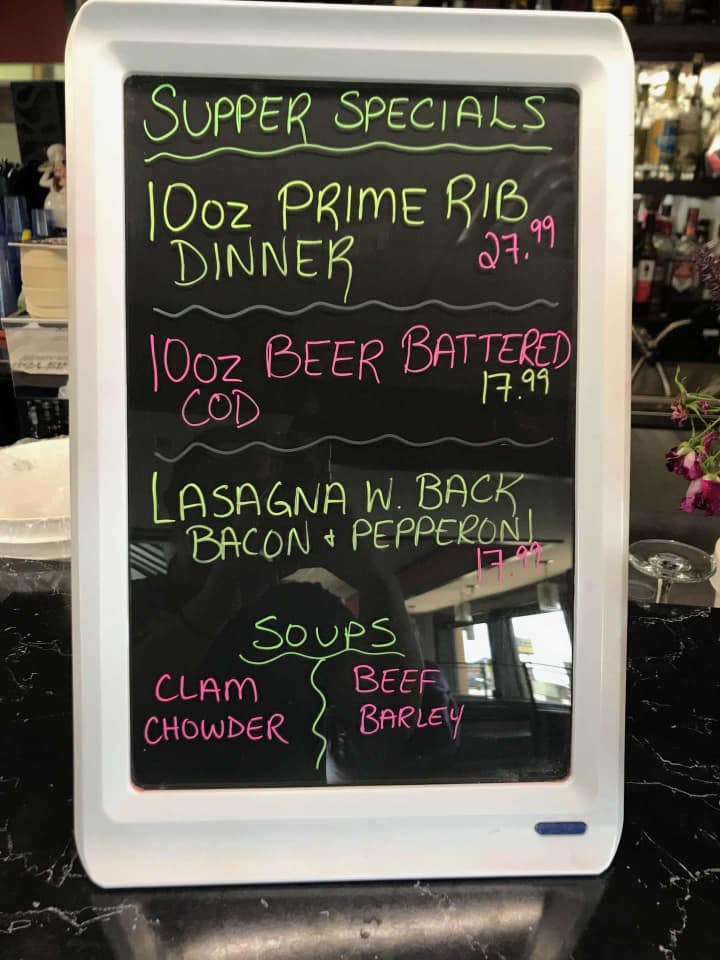 SUPPER SPECIALS
10oz PRIME RIB
DINNER 27.99
10oz BEER BATTERED
COD 17.99
LASAGNA W. BACK
BACON + PEPPERONI
17.99
SOUPS
CLAM
CHOWDER
BEEF
BARLEY